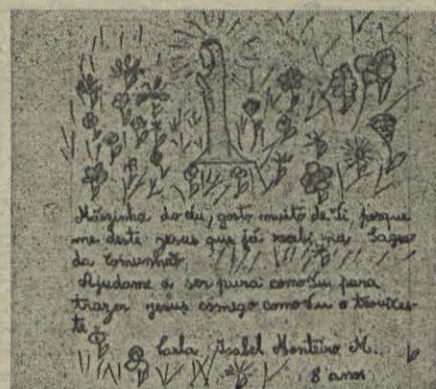 Mãezinha do céu, gosto muito de Ti porque
me deste jesus que já recebi na Sagra
da Comunhão.
Ajudame a ser pura como Tu, para
trazer jesus comigo como Tu o trouxes-
te
Carla Isabel Monteiro M..
8 anos